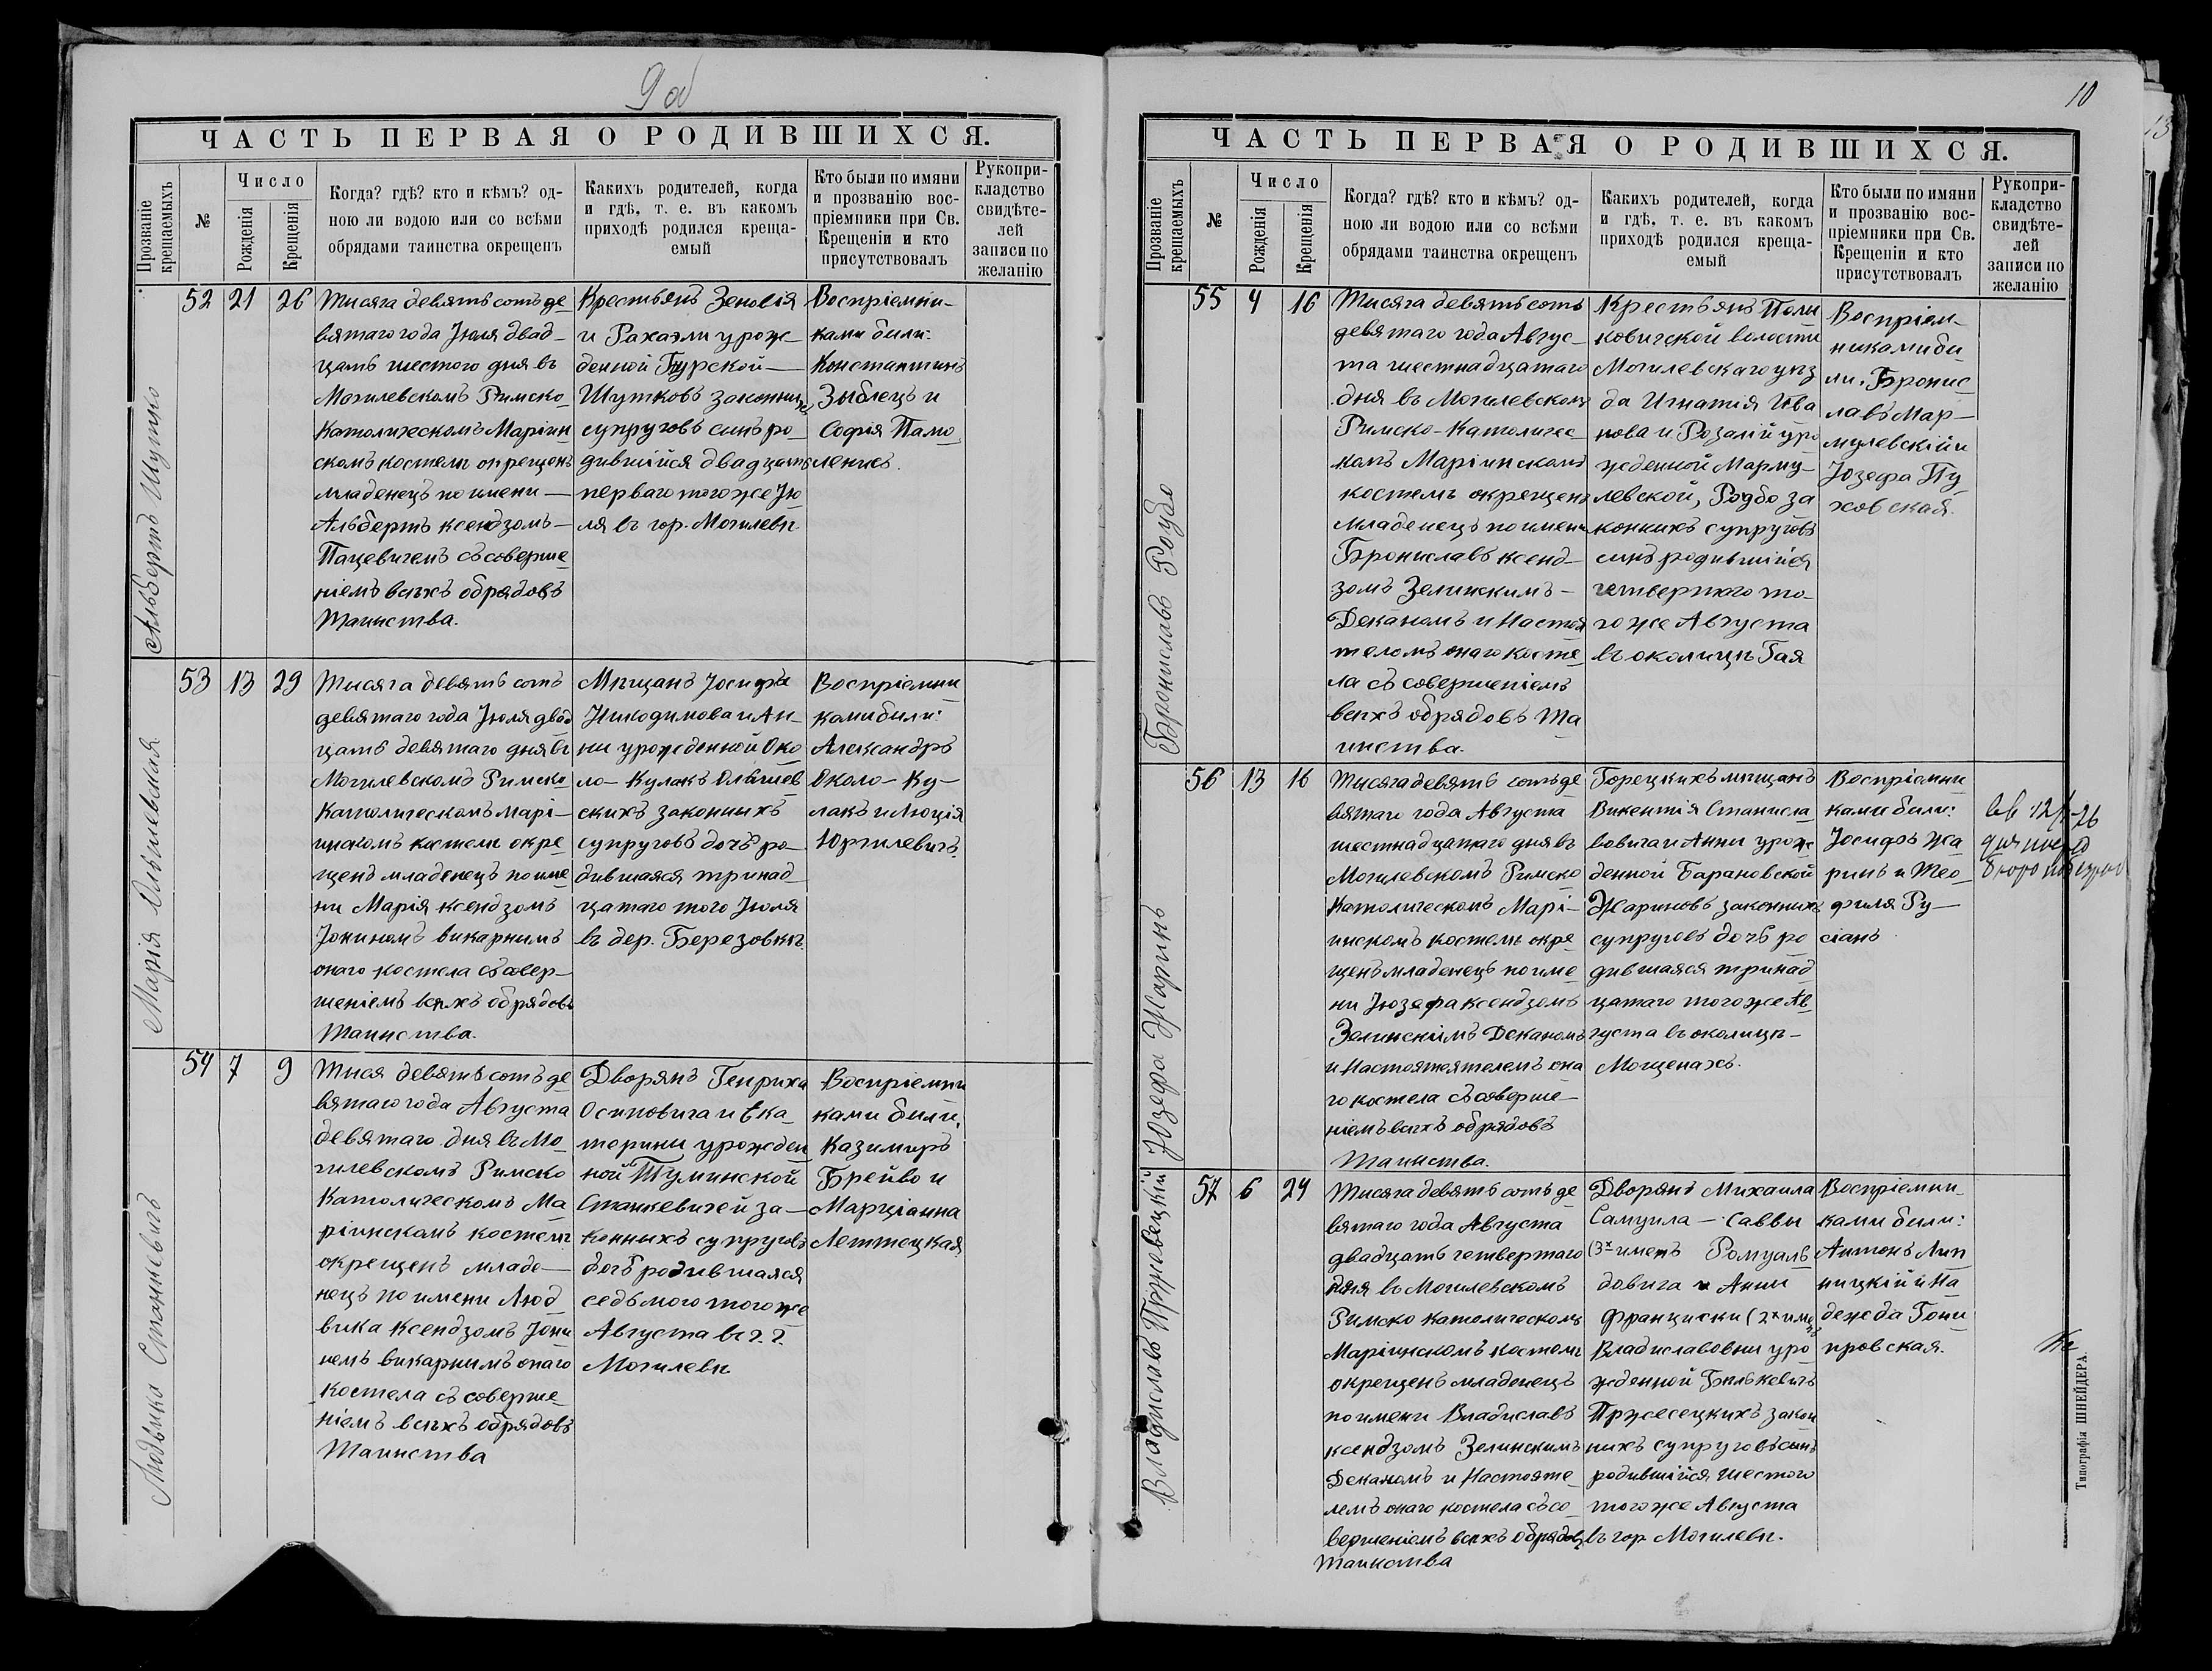 9 об
ЧАСТЬ ПЕРВАЯ О РОДИВШИХСЯ.
Прозваніе
крещаемыхъ
№
Число
Рожденія
Крещенія
Когда? гдѣ? кто и кѣмъ? од-
ною ли водою или со всѣми
обрядами таинства окрещенъ
Какихъ родителей, когда
и гдѣ, т. е. въ какомъ
приходѣ родился креща-
емый
Кто были по имяни
и прозванію вос-
пріемники при Св.
Крещеніи и кто
присутствовалъ
Рукопри-
кладство
свидѣте-
лей
записи по
желанію
Альбертъ Шутко
52
21
26
Тисяга девятьсотъ де-
вятаго года Іюля двад-
цать шестого дня въ
Могилевскомъ Римско-
Католическомъ Маріин
скомъ костелѣ окрещенъ
младенецъ по имени —
Альбертъ ксендзомъ —
Пацевичемъ съ соверше
ніемъ всѣхъ обрядовъ
Таинства.
Крестьянъ Зеновія
и Рахаэли урож-
денной Турской —
Шутковъ законныхъ
супруговъ сынъ ро-
дившійся двадцать
перваго того же Ію
ля въ гор. Могилевѣ.
Воспріемни-
ками были:
Константинъ
Зыблецъ и
Софія Памо
ленисъ.
Марія Ольшевская
53
13
29
Тысяга девятьсотъ
девятаго года Іюля двад
цать девятаго дня въ
Могилевскомъ Римско
Католическомъ Марі-
инскомъ костелѣ окре-
щенъ младенецъ по име
ни Марія ксендзомъ
Іониномъ викарнымъ
онаго костела съ совер-
шеніемъ всѣхъ обрядовъ
Таинства.
Мѣщанъ Іосифа
Никодимова и Ан-
ны урожденной Око
ло-Кулакъ Ольшев
скихъ законныхъ
супруговъ дочь ро-
дившаяся тринад-
цатаго того Іюля
въ дер. Березовкѣ.
Воспріемни
ками были:
Александръ
Около-Ку-
лакъ и Люція
Юргилевичъ.
Людвика Станкевичъ
54
7
9
Тися девятьсотъ де
вятаго года Августа
девятаго дня въ Мо
гилевскомъ Римско
Католическомъ Ма
ріинскомъ костелѣ
окрещенъ младе-
нецъ по имени Люд
вика Ксендзомъ Іони
немъ викарнымъ онаго
костела съ соверше
ніемъ всѣхъ обрядовъ
Таинства
Дворянъ Генриха
Осиповича и Ека
терины урожден
ной Туминской
Станкевичей за-
конныхъ супруговъ
дочь родившаяся
седьмого того же
Августа въ г.
Могилевѣ
Воспріемни
ками были,
Казимиръ
Брейво и
Марціанна
Леттецкая
10
ЧАСТЬ ПЕРВАЯ О РОДИВШИХСЯ.
Прозваніе
крещаемыхъ
№
Число
Рожденія
Крещенія
Когда? гдѣ? кто и кѣмъ? од-
ною ли водою или со всѣми
обрядами таинства окрещенъ
Какихъ родителей, когда
и гдѣ, т. е. въ какомъ
приходѣ родился креща-
емый
Кто были по имяни
и прозванію вос-
пріемники при Св.
Крещеніи и кто
присутствовалъ
Рукопри-
кладство
свидѣте-
лей
записи по
желанію
Брониславъ Роудо
55
4
16
Тисяга девятьсотъ
девятаго года Авгус-
та шестнадцатаго
дня въ Могилевскомъ
Римско-Католичес-
комъ Маріинскомъ
костелѣ окрещенъ
младенецъ по имени
Брониславъ ксенд-
зомъ Зелинскимъ —
Деканомъ и Настоя
телемъ онаго косте-
ла съ совершеніемъ
всѣхъ обрядовъ Та
инства.
Крестьянъ Поли
ковичской волости
Могилевскаго уѣз
да Игнатія Ива
нова и Розаліи уро
жденной Марму-
левской, Роудо за
конныхъ супруговъ
сынъ родившійся
четвертаго то-
го же Августа
въ околицѣ Гая
Воспріем-
никами бы
ли: Бронис
лавъ Мар-
мулевскій и
Юзефа Пу
ховская.
Юзефа Жаринъ
56
13
16
Тисяга девятьсотъ де
вятаго года Августа
шестнадцатаго дня въ
Могилевскомъ Римско
Католическомъ Марі-
инскомъ костелѣ окре
щенъ младенецъ по име
ни Іюзефа ксендзомъ
Зелинскимъ Деканомъ
и Настоятелемъ она
го костела съ соверше-
ніемъ всѣхъ обрядовъ
Таинства.
Горецкихъ мѣщанъ
Викентія Станисла
вовича и Анны урож
денной Барановской
Жариновъ законныхъ
супруговъ дочь ро
дившаяся тринад
цатаго того же Ав
густа въ околицѣ —
Мощенахъ.
Воспріемни
ками были:
Іосифъ Жа
ринъ и Тео-
филя Ру-
сіанъ
Владиславъ Пржесецкій
57
6
24
Тисяга девятьсотъ де
вятаго года Августа
двадцать четвертаго
дня въ Могилевскомъ
Римско Католическомъ
Маріинскомъ костелѣ
окрещенъ младенецъ
по имени Владиславъ
ксендзомъ Зелинскимъ
Деканомъ и Настояте
лемъ онаго костела съ со-
вершеніемъ всѣхъ обрядовъ
Таинства
Дворянъ Михаила
Самуила-Саввы
(3х именъ Ромуаль
довича и Анны
Франциски (2х име
Владиславовны уро
жденной Билькевичъ
Пржесецкихъ закон
ныхъ супруговъ сынъ
родившійся шестого
того же Августа
въ гор. Могилевѣ.
Воспріемни-
ками были:
Антонъ Лип
ницкій и На
дежда Гони
провская.
Типографія ШНЕЙДЕРА.